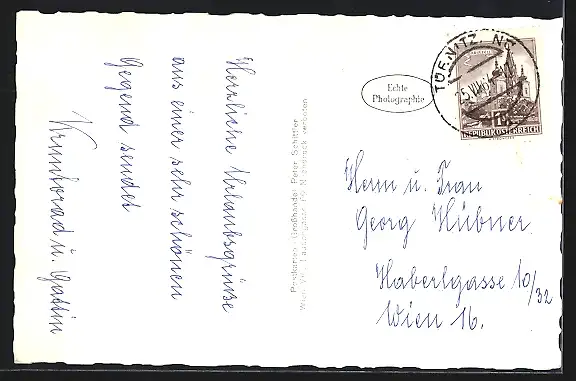 Herzliche Urlaubsgrüße
aus einer sehr schönen
Gegend sendet
u. Gattin
Postkarten-Großhandel Peter Schittler
Nachdruck verboten
Echte
Photographie
TÜRNITZ, NÖ
REPUBLIK ÖSTERREICH
Herrn u. Frau
Georg Hübner
Haberlgasse 10/32
Wien 16.